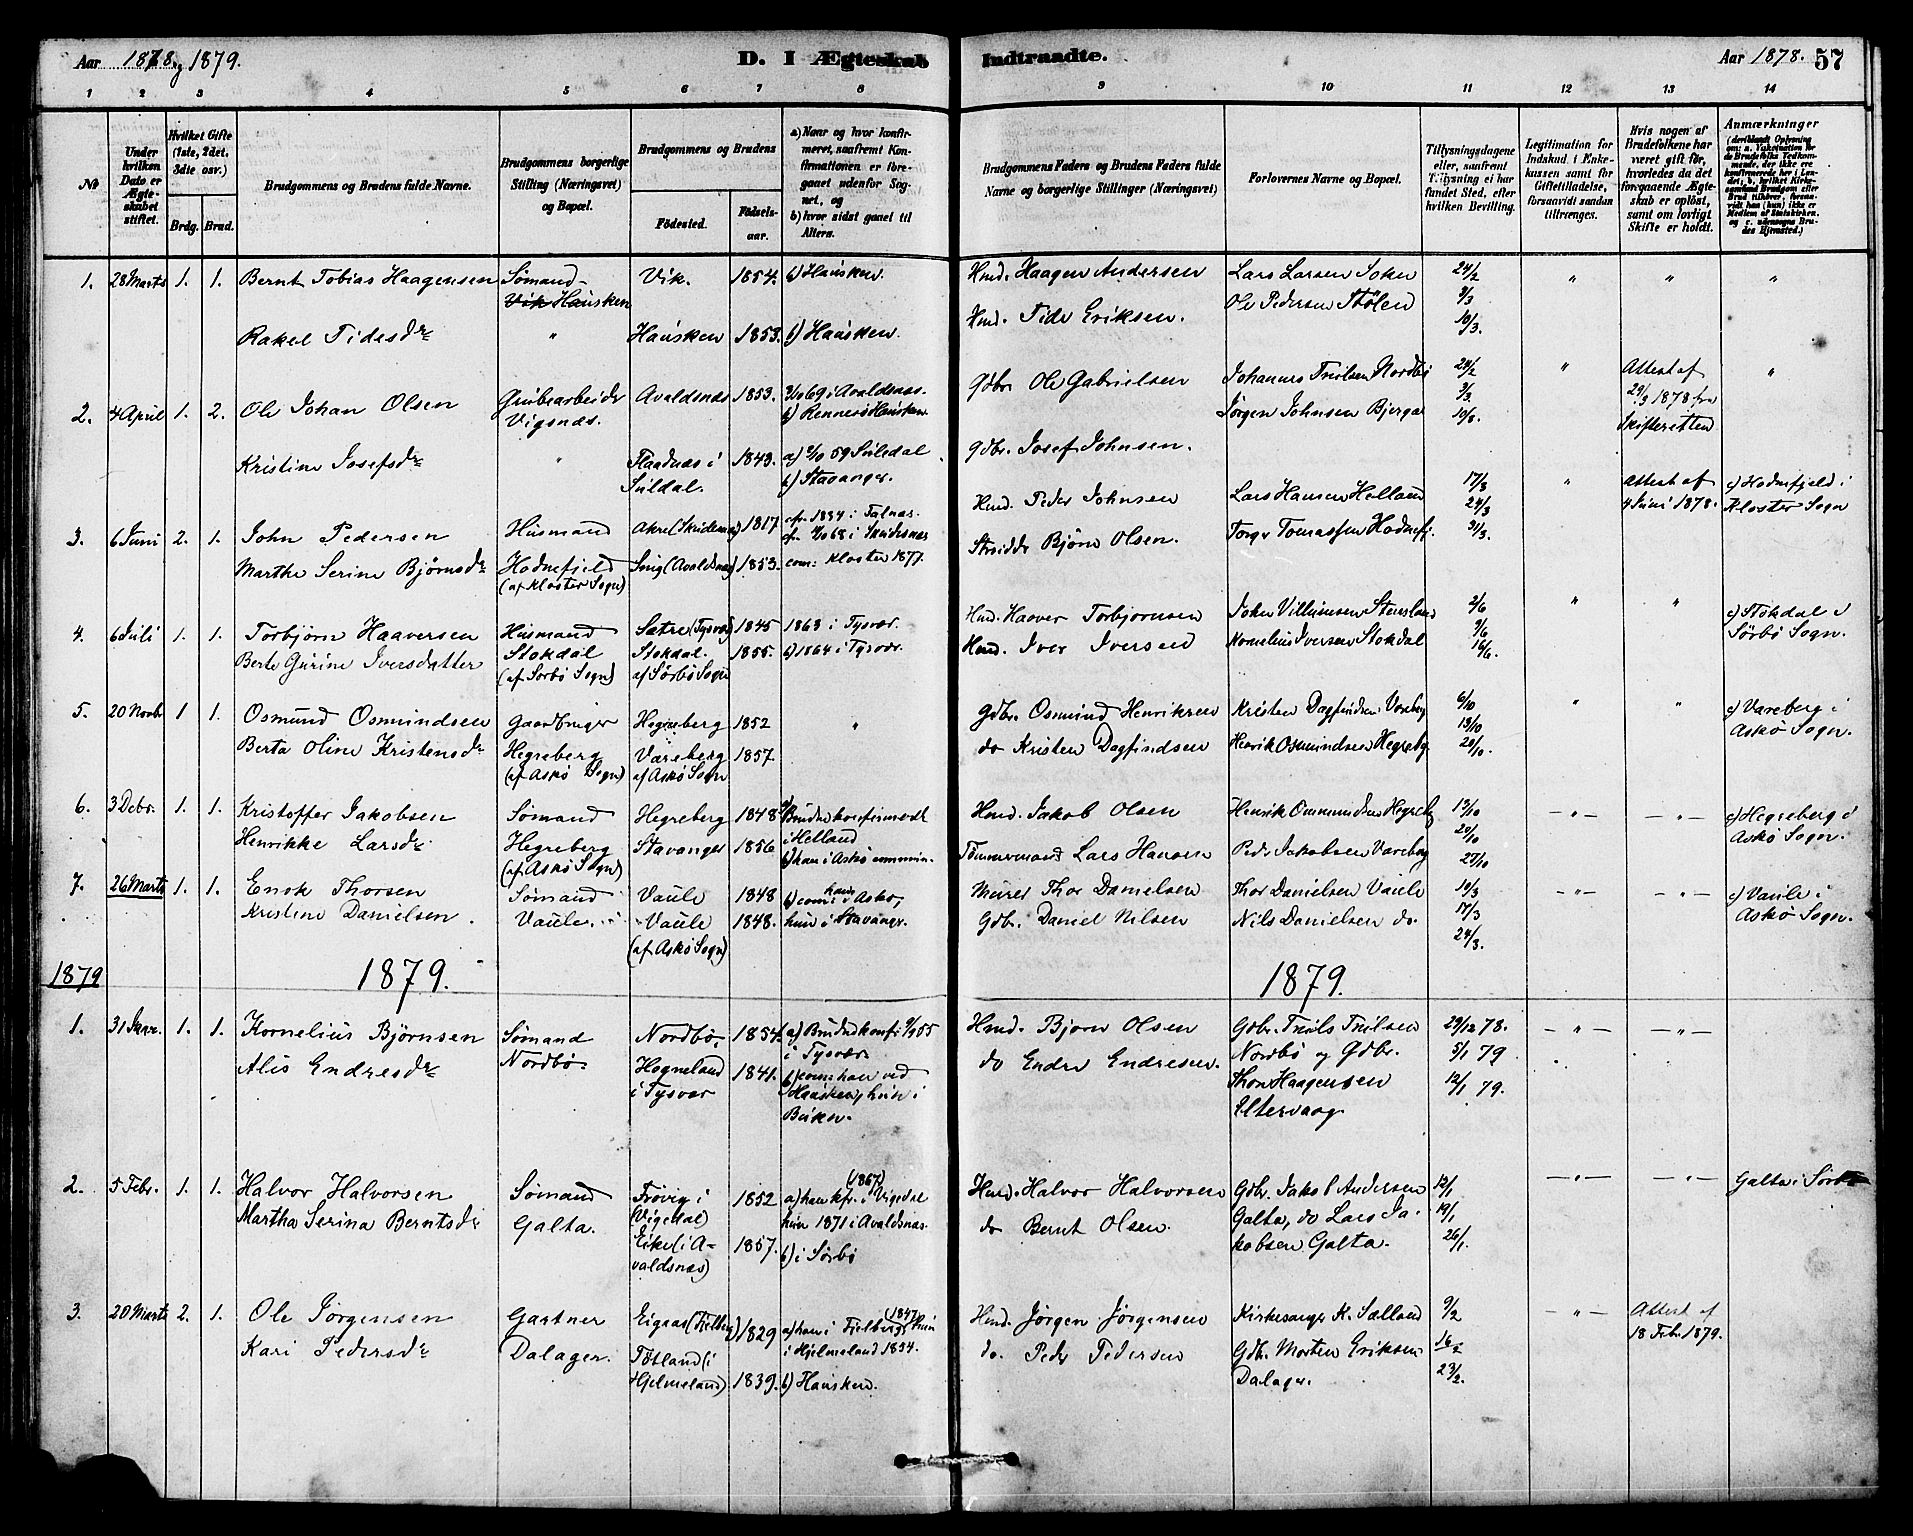 Aar 1878 og 1879.
D. I Ægteskab
Indtraadte.
Aar 1878. 57
1 2 3 4 5 6 7 8 9 10 11 12 13 14
№
Under hvilken Dato er Ægteskabet stiftet.
Hvilket Gifte (1ste, 2det, 3die osv.)
Brdg. Brud.
Brudgommens og Brudens fulde Navne.
Brudgommens borgerlige Stilling (Næringsvei) og Bopæl.
Brudgommens og Brudens
Fødested.
Fødselsaar.
a) Naar og hvor konfirmeret, saafremt Konfirmationen er foregaaet udenfor Sognet, og
b) hvor sidst gaaet til Alters.
Brudgommens Faders og Brudens Faders fulde Navne og borgerlige Stillinger (Næringsvei)
Forlovernes Navne og Bopæl.
Tillysningsdagene eller, saafremt Tillysning ei har fundet Sted, efter hvilken Bevilling.
Legitimation for Indskud i Enkekassen samt for Giftetilladelse, forsaavidt saadan tiltrænges.
Hvis nogen af Brudefolkene har været gift før, hvorledes da det foregaaende Ægteskab er opløst, samt om lovligt Skifte er holdt.
Anmærkninger
1. 28 Marts 1. 1. Bernt Tobias Haagensen Sømand Vik Hausken Vik. 1854. b) Hausken. Hmd. Haagen Andersen Lars Larsen Sokn 24/2 " " "
Rakel Tidesdr " Hausken 1853. b) Hausken. Hmd. Tide Eriksen. Ole Pedersen Stølen 3/3 10/3.
2. 4 April 1. 2. Ole Johan Olsen Grubearbeider Vigsnæs. Avaldsnæs 1853. 69 i Avaldsnæs. b) Rennesø Hausken Gdbr. Ole Gabrielsen Johannes Nordbø 24/2 " Attest af 29/3 1878 fra Skifteretten "
Kristine Josefsdr " i Suldal. 1843. a) 59 Suledal b) Stavanger. Gdbr. Josef Johnsen. Jørgen Johnsen Bjerga 3/3. 10/3.
3. 6 Juni 2. 1. John Pedersen Husmand Akre (Skudenæs) 1817 1834 i Falnæs. 68 i Skudesnæs Hmd. Peder Johnsen Lars Hansen Helland 17/3 " Attest af 4 Juni 1878. c) Hodnefjeld i Kloster Sogn
Marthe Serine Bjørnsdr Hodnefjeld (af Kloster Sogn) Snig (Avaldsnæs) 1853. com: Kloster 1877. Bjørn Olsen. Torger Tomassen Hodnefj. 24/3 31/3.
4. 6 Juli 1. 1. Torbjørn Haaversen Husmand Sætre (Tysvær) 1845 1863 i Tysvær. Hmd. Haaver Torbjørnsen John Villumsen Stensland 2/6 " " c) Stokdal i Sørbø Sogn.
Berte Gurine Iversdatter Stokdal (af Sørbø Sogn) Stokdal. af Sørbø Sogn 1855. b) 1864 i Tysvær. Hmd. Iver Iversen Kornelius Iversen Stokdal 9/6 16/6.
5. 20 Novb. 1 1. Osmund Osmundsen Gaardbruger Hegreberg 1852 " Gdbr. Osmund Henriksen Kristen Dagfindsen Vareberg 6/10 " " c) Vareberg i Askø Sogn.
Berta Oline Kristensdr Hegreberg (af Askø Sogn) Vareberg af Askø Sogn 1857. do Kristen Dagfindsen Henrik Osmundsen Hegreberg 13/10 20/10.
6. 3 Debr. 1. 1. Kristoffer Jakobsen Sømand Hegreberg 1848 a) Bruden konfirmeret i Helland Hmd. Jakob Olsen Henrik Hegreberg 13/10 – " – – " – c) Hegreberg i Askø Sogn.
Henrikke Larsdr Hegreberg (af Askø Sogn) Stavanger 1856 b) han i Askø Tømmermand Lars Hansen Peder Jakobsen Vareberg 20/10 27/10
7. 26 Marts 1. 1. Enok Thorsen Sømand Vaule 1848 b) com: han i Askø, Murer Thor Danielsen Thor Danielsen Vaule 10/3 – " – – " – c) Vaule i Askø Sogn.
Kristine Danielsen. Vaule. Vaule (af Askø Sogn) 1848. hun i Stavanger. Gdbr. Daniel Nilsen Nils Danielsen do. 17/3 24/3.
1879 1879. 1879.
1. 31 Janr. 1. 1. Kornelius Bjørnsen Sømand Nordbø. 1854. a) Bruden konf: 55 i Tysvær Hmd. Bjørn Olsen Gdbr. Nordbø og Gdbr. 29/12 78. – " – – " –
Alis Endresdr Nordbø. Hogneland i Tysvær 1841. b) com: han ved Hausken, hun i Buken. do Endre Endresen. Thor Haagensen Eltervaag 5/1 79 12/1 79.
2. 5 Febr. 1. 1. Halvor Halvorsen Sømand Frøvig i (Vigedal) 1852 a) han kfr. (1867) i Vigedal Hmd. Halvor Halvorsen Gdbr. Jakob Andersen 12/1 – " – – " – Galta i Sørbø
Martha Serina Berntsdr Galta. Eike (i Avaldsnæs) 1857. hun 1871 i Avaldsnæs. b) i Sørbø do Bernt Olsen. Galta, do Lars Jakobsen Galta. 19/1 26/1.
3. 20 Marts 2. 1. Ole Jørgensen Gartner (Fjelberg) 1829 a) han i Fjelberg (1847) hun Hmd. Jørgen Jørgensen Kirkesanger K. Sælland 9/2 – " – Attest af 18 Feb. 1879.
Kari Pedersdr Dalager. Tøtland (i Hjelmeland) 1839. i Hjelmeland 1854. b) Hausken. do. Peder Pedersen Gdbr. Morten Eriksen Dalager. 16/2 23/2.